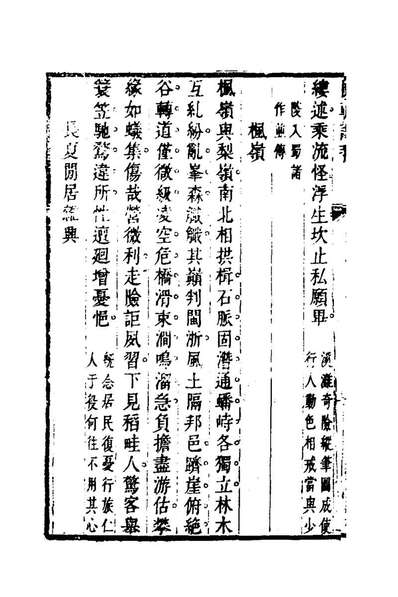 縷述乘流怪浮生坎止私願畢 溪灘奇險縱筆圖成使
行人動色相戒當與少
陵入蜀諸
作並傳
楓嶺
楓嶺與梨嶺南北相拱楫石脈固潛通嶠峙各獨立林木
互糺紛亂峯森嶻嶭其巔判閩浙風土隔邦邑躋崖俯絕
谷轉道僅微級凌空危橋滑束澗鳴溜急負擔盡游估攀
緣如蟻集傷哉營微利走險詎夙習下見稻畦人驚客舉
簑笠馳騖違所性邅迴增憂悒 旣念居民復憂行旅仁
人于役何往不用其心
長夏閒居雜興